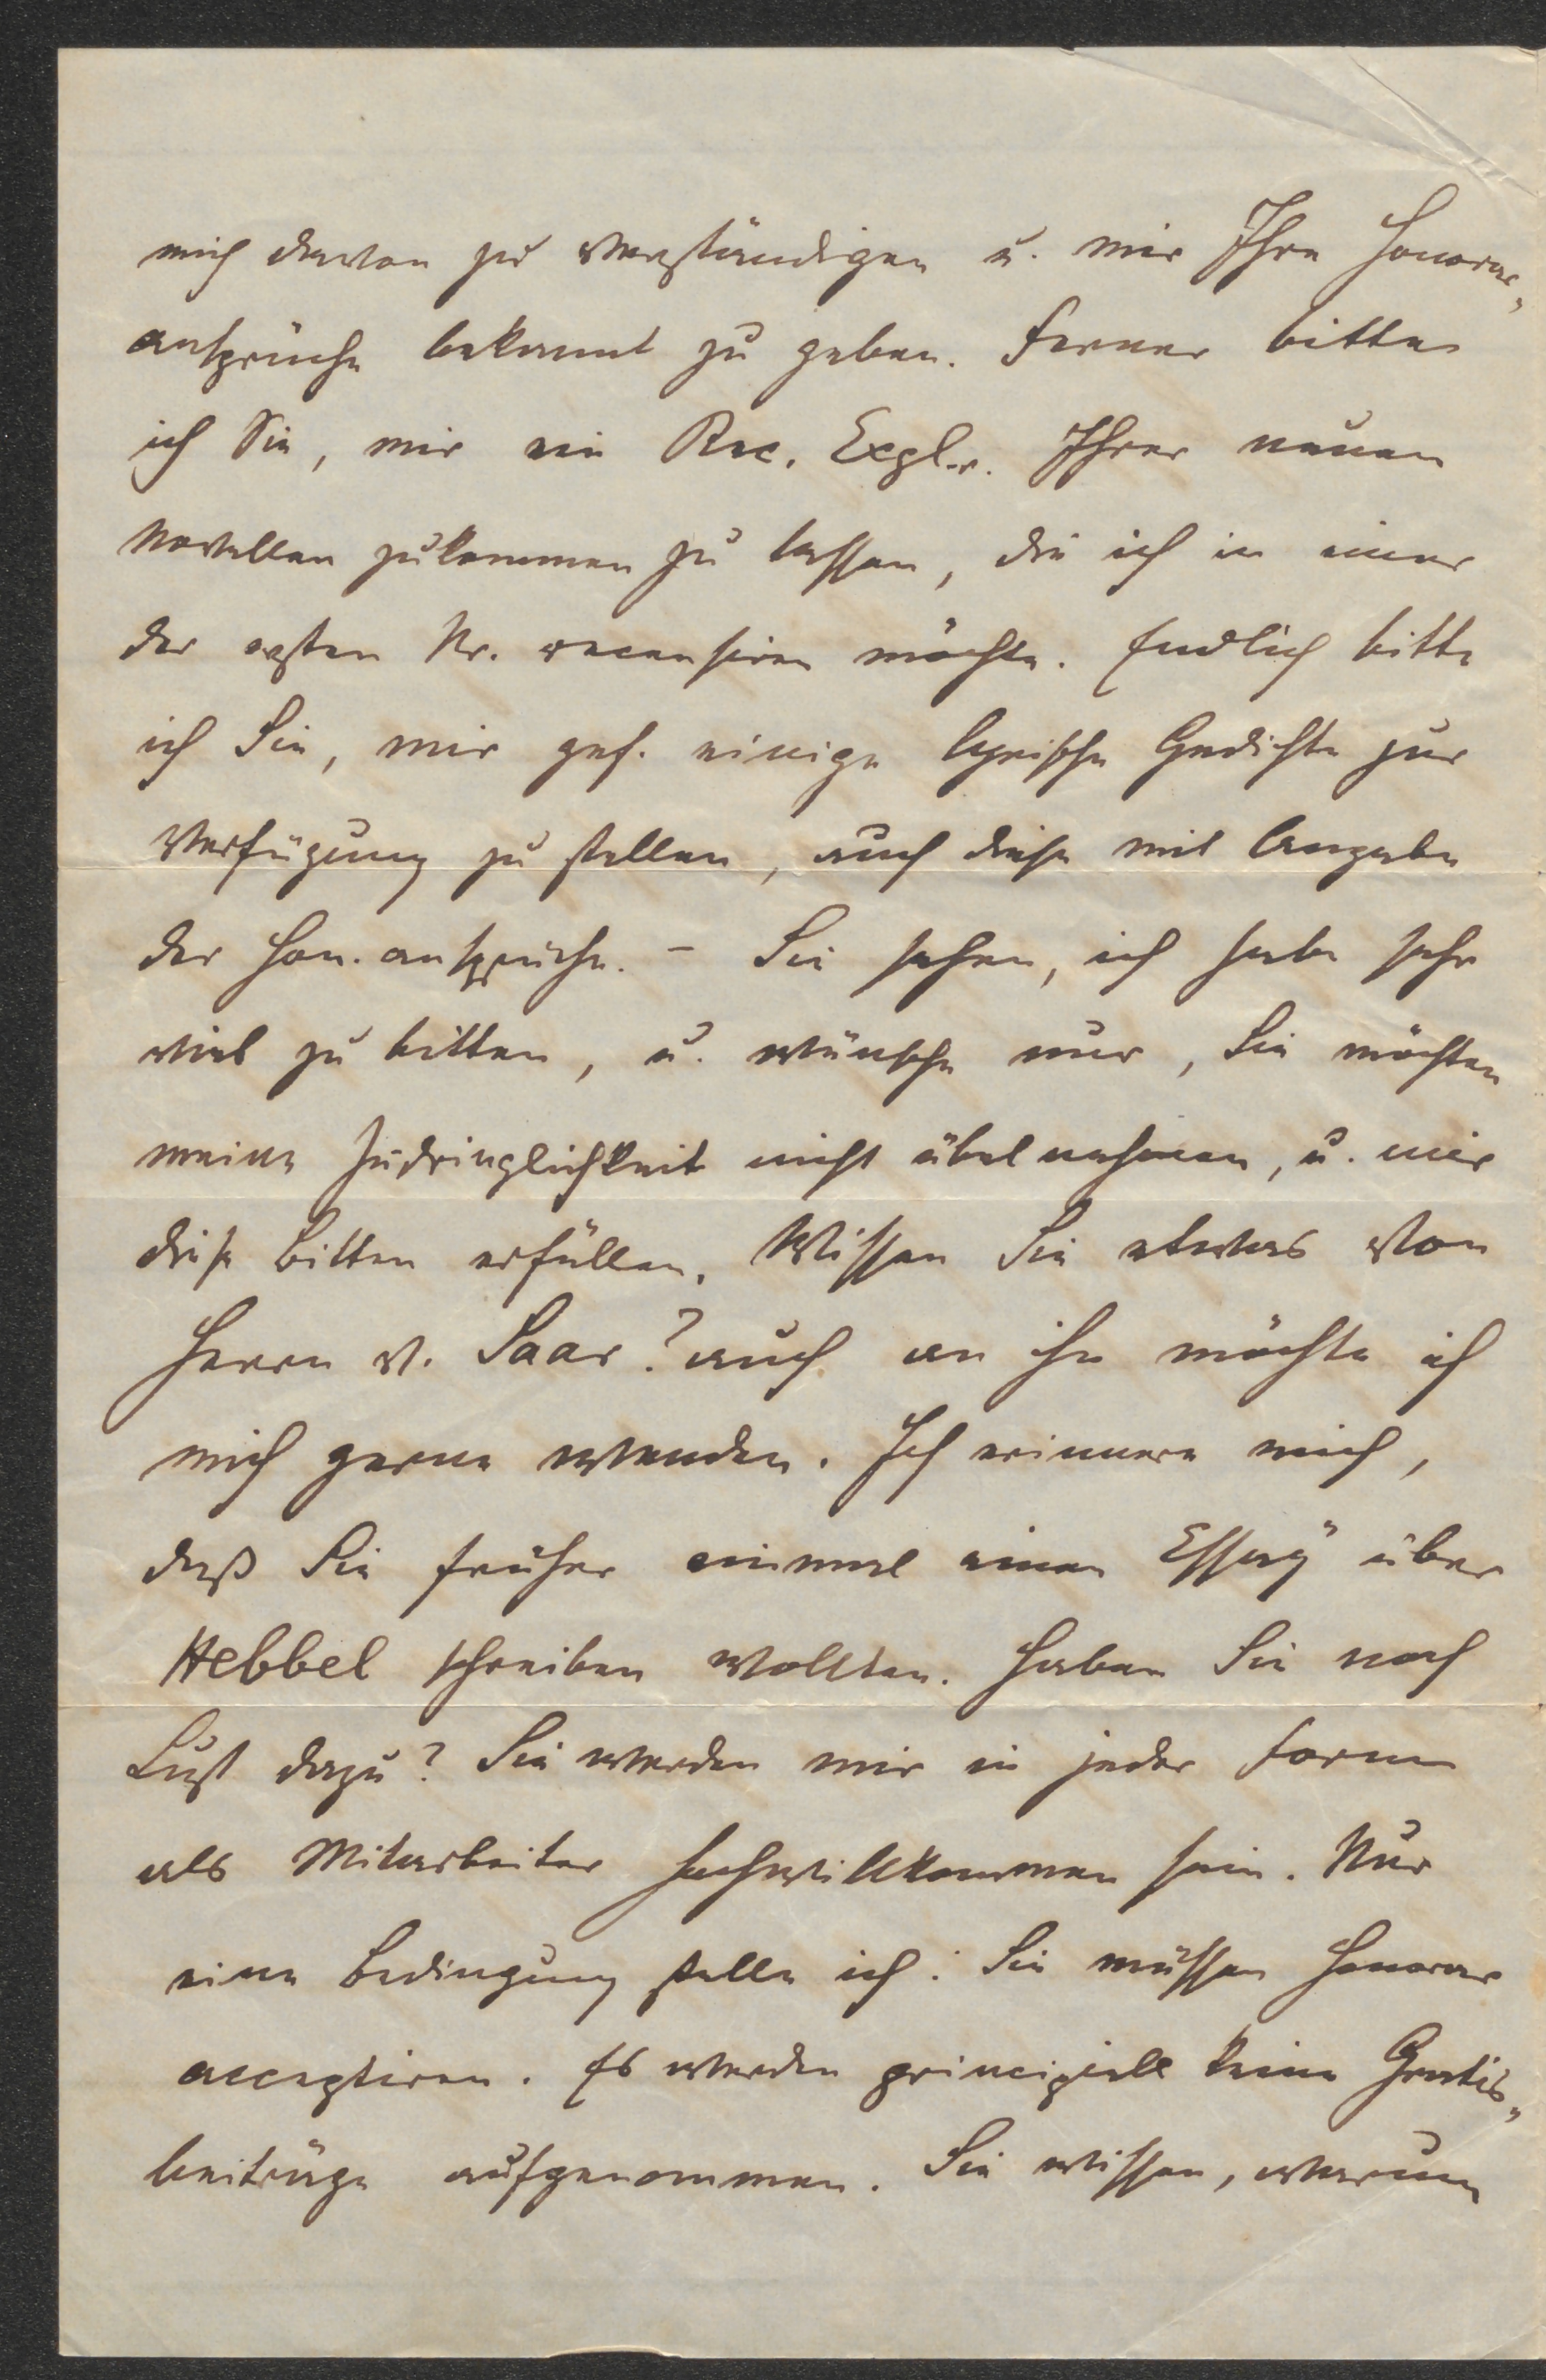 mich davon zu verständigen u. mir Ihre Honorar-
ansprüche bekannt zu geben. Ferner bitte
ich Sie, mir ein Rec. Explr. Ihrer neuen
Novellen zukommen zu lassen, die ich in einer
der ersten Nr. recensiren möchte. Endlich bitte
ich Sie, mir gef. einige lyrische Gedichte zur
Verfügung zu stellen, auch diese mit Angabe
der Hon. ansprüche. – Sie sehen, ich habe sehr
viel zu bitten, u. wünsche nur, Sie möchten
meine Zudringlichkeit nicht übelnehmen, u. mir
diese Bitten erfüllen. Wissen Sie etwas von
Herrn v. Saar? auch an ihn möchte ich
mich gerne wenden. Ich erinnere mich,
daß Sie früher einmal einen Essay über
Hebbel schreiben wollten. Haben Sie noch
Lust dazu? Sie werden mir in jeder Form
als Mitarbeiter hochwillkommen sein. Nur
eine Bedingung stelle ich: Sie müssen Honorar
acceptiren. Es werden principiell keine Gratis-
beiträge aufgenommen. Sie wissen, warum